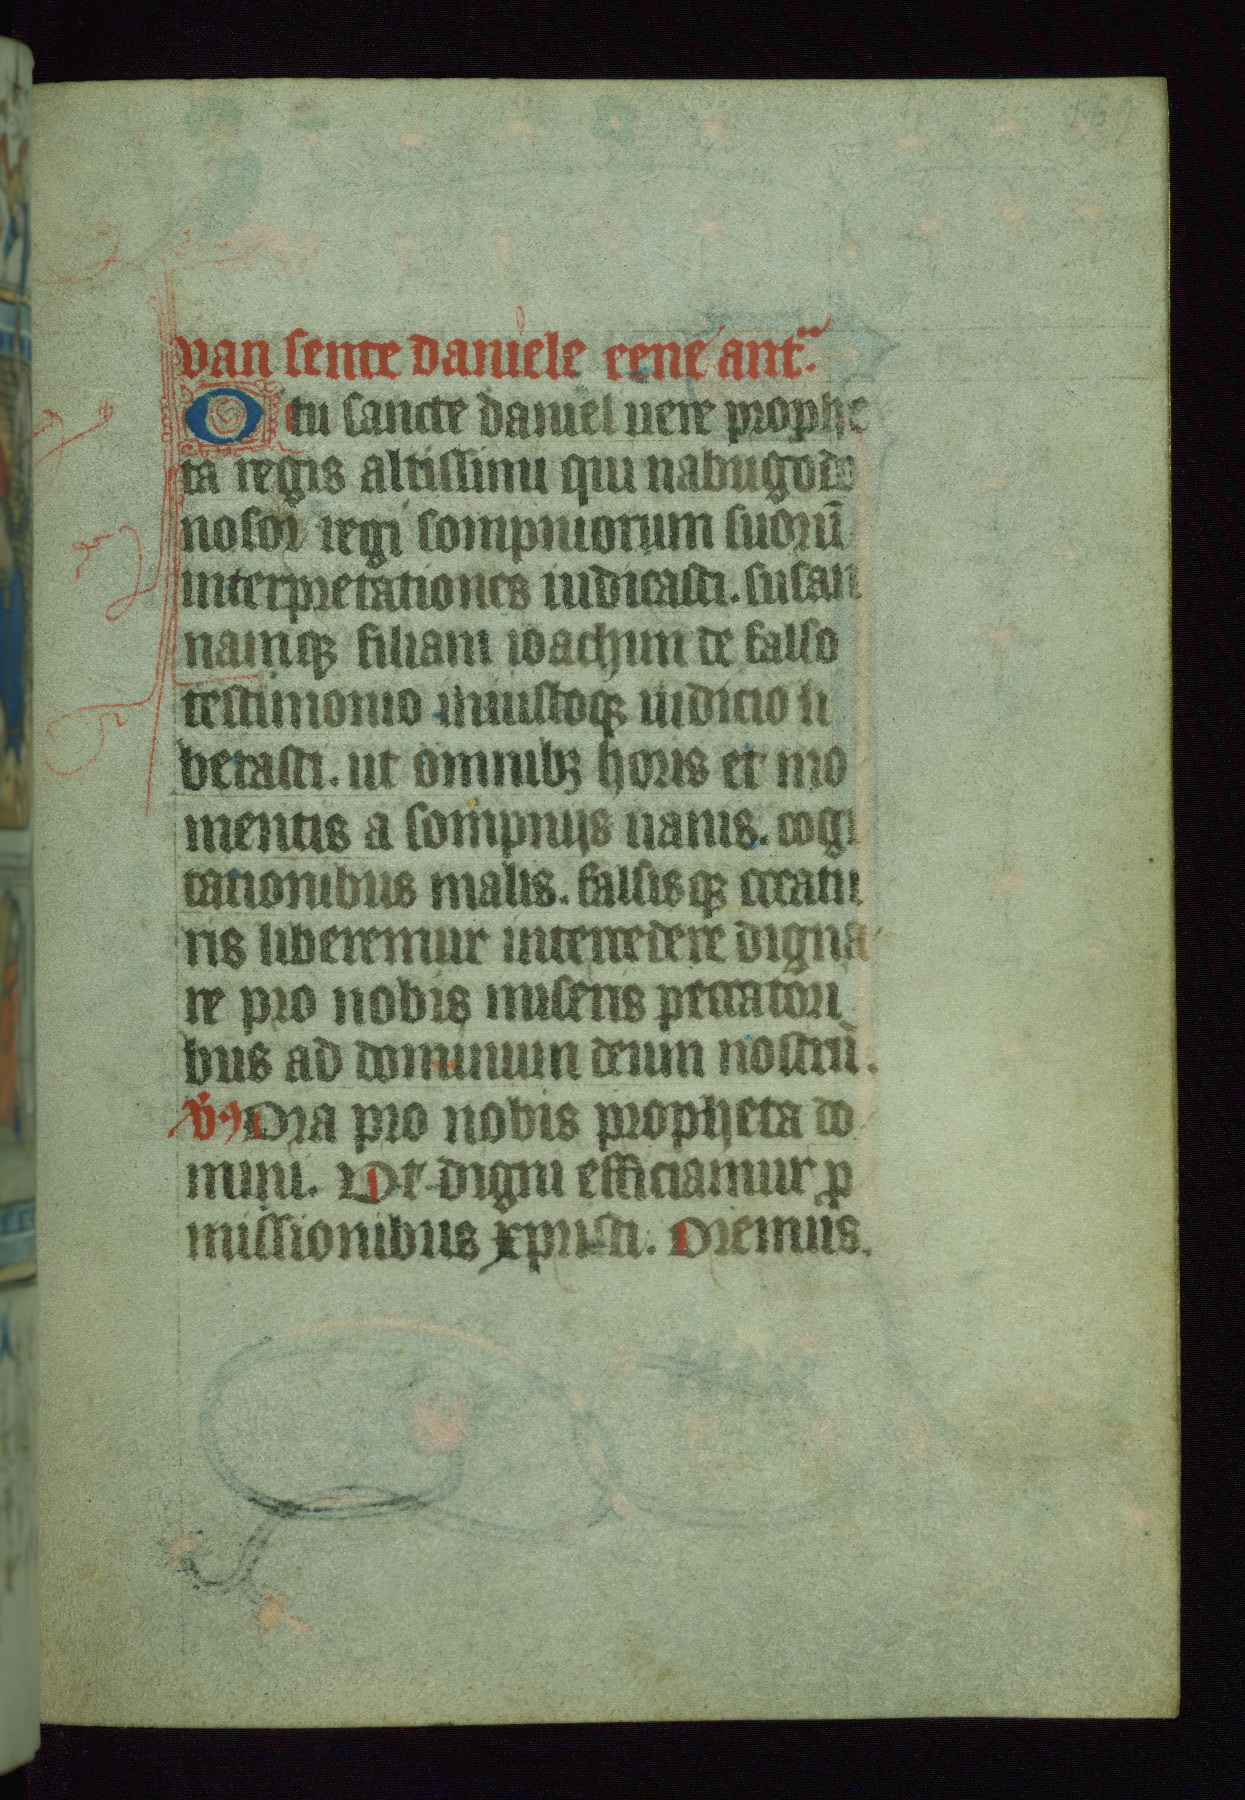 van sente daniele eene ant.
O tu sancte daniel uere prophe
ta regis altissimi qui nabugodo
nosor regi sompniorum suorū
interpretationes iudicasti. susan
namqꝫ filiam ioachim de falso
testimonio iniustoqꝫ iudicio li
berasti. ut omnibꝫ horis et mo
mentis a sompnijs uanis. cogi
tationibus malis. falsisqꝫ creatu
ris liberemur intercedere digna
re pro nobis miseris peccatori
bus ad dominum deum nostrū.
v̄. Ora pro nobis propheta do
mini. Ut digni efficiamur ꝓ
missionibus xpristi. Oremus.